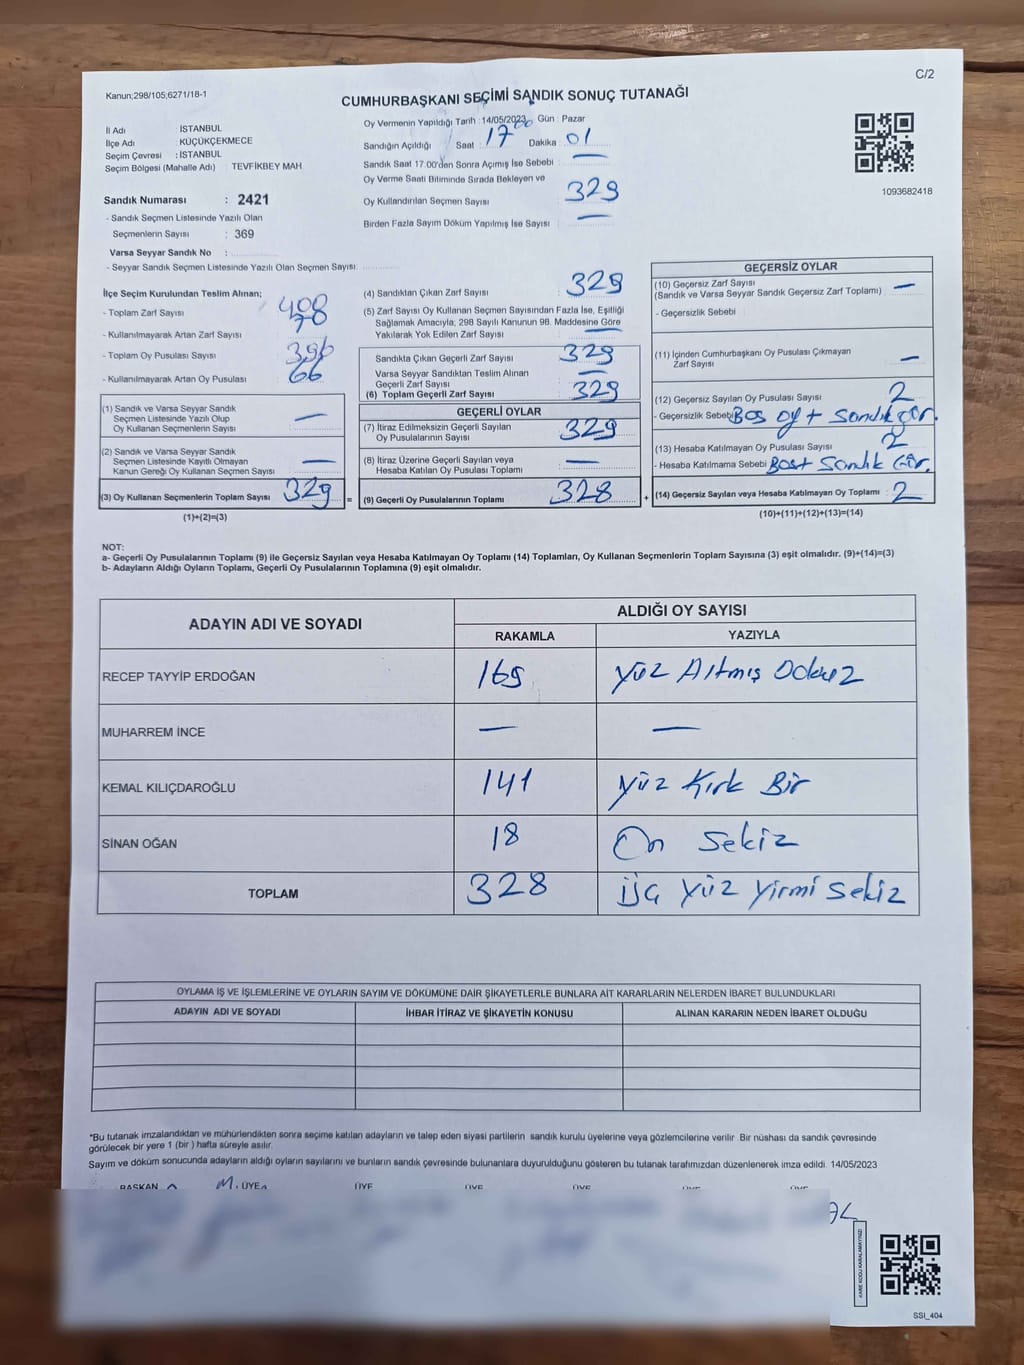 C/2
Kanun;298/105;6271/18-1
CUMHURBAŞKANI SEÇİMİ SANDIK SONUÇ TUTANAĞI
İl Adı İSTANBUL
İlçe Adı KÜÇÜKÇEKMECE
Seçim Çevresi : İSTANBUL
Seçim Bölgesi (Mahalle Adı) : TEVFİKBEY MAH
Sandık Numarası : 2421
- Sandık Seçmen Listesinde Yazılı Olan
Seçmenlerin Sayısı : 369
Varsa Seyyar Sandık No :
- Seyyar Sandık Seçmen Listesinde Yazılı Olan Seçmen Sayısı:
Oy Vermenin Yapıldığı Tarih : 14/05/2023 Gün : Pazar
Sandığın Açıldığı Saat : 17 00 Dakika 01
Sandık Saat 17.00'den Sonra Açımış İse Sebebi : —
Oy Verme Saati Bitiminde Sırada Bekleyen ve
Oy Kullandırılan Seçmen Sayısı 329
Birden Fazla Sayım Döküm Yapılmış İse Sayısı : —
1093682418
İlçe Seçim Kurulundan Teslim Alınan;
- Toplam Zarf Sayısı : 408
- Kullanılmayarak Artan Zarf Sayısı : 78
- Toplam Oy Pusulası Sayısı : 396
- Kullanılmayarak Artan Oy Pusulası : 66
(1) Sandık ve Varsa Seyyar Sandık
Seçmen Listesinde Yazılı Olup
Oy Kullanan Seçmenlerin Sayısı —
(2) Sandık ve Varsa Seyyar Sandık
Seçmen Listesinde Kayıtlı Olmayan
Kanun Gereği Oy Kullanan Seçmen Sayısı —
(3) Oy Kullanan Seçmenlerin Toplam Sayısı 329 =
(1)+(2)=(3)
(4) Sandıktan Çıkan Zarf Sayısı : 329
(5) Zarf Sayısı Oy Kullanan Seçmen Sayısından Fazla İse, Eşitliği
Sağlamak Amacıyla; 298 Sayılı Kanunun 98. Maddesine Göre
Yakılarak Yok Edilen Zarf Sayısı —
Sandıkta Çıkan Geçerli Zarf Sayısı : 329
Varsa Seyyar Sandıktan Teslim Alınan
Geçerli Zarf Sayısı —
(6) Toplam Geçerli Zarf Sayısı 329
GEÇERLİ OYLAR
(7) İtiraz Edilmeksizin Geçerli Sayılan
Oy Pusulalarının Sayısı : 329
(8) İtiraz Üzerine Geçerli Sayılan veya
Hesaba Katılan Oy Pusulası Toplamı —
(9) Geçerli Oy Pusulalarının Toplamı 328 +
GEÇERSİZ OYLAR
(10) Geçersiz Zarf Sayısı
(Sandık ve Varsa Seyyar Sandık Geçersiz Zarf Toplamı) —
- Geçersizlik Sebebi
(11) İçinden Cumhurbaşkanı Oy Pusulası Çıkmayan
Zarf Sayısı —
(12) Geçersiz Sayılan Oy Pusulası Sayısı 2
- Geçersizlik Sebebi Boş oy + Sandık gör.
(13) Hesaba Katılmayan Oy Pusulası Sayısı 2
- Hesaba Katılmama Sebebi Boş+ Sandık Gör.
(14) Geçersiz Sayılan veya Hesaba Katılmayan Oy Toplamı 2
(10)+(11)+(12)+(13)=(14)
NOT:
a- Geçerli Oy Pusulalarının Toplamı (9) ile Geçersiz Sayılan veya Hesaba Katılmayan Oy Toplamı (14) Toplamları, Oy Kullanan Seçmenlerin Toplam Sayısına (3) eşit olmalıdır. (9)+(14)=(3)
b- Adayların Aldığı Oyların Toplamı, Geçerli Oy Pusulalarının Toplamına (9) eşit olmalıdır.
ADAYIN ADI VE SOYADI ALDIĞI OY SAYISI
RAKAMLA YAZIYLA
RECEP TAYYİP ERDOĞAN 169 Yüz Altmış Dokuz
MUHARREM İNCE — —
KEMAL KILIÇDAROĞLU 141 Yüz Kırk Bir
SİNAN OĞAN 18 On Sekiz
TOPLAM 328 Üç Yüz Yirmi Sekiz
OYLAMA İŞ VE İŞLEMLERİNE VE OYLARIN SAYIM VE DÖKÜMÜNE DAİR ŞİKAYETLERLE BUNLARA AİT KARARLARIN NELERDEN İBARET BULUNDUKLARI
ADAYIN ADI VE SOYADI İHBAR İTİRAZ VE ŞİKAYETİN KONUSU ALINAN KARARIN NEDEN İBARET OLDUĞU
*Bu tutanak imzalandıktan ve mühürlendikten sonra seçime katılan adayların ve talep eden siyasi partilerin sandık kurulu üyelerine veya gözlemcilerine verilir. Bir nüshası da sandık çevresinde
görülecek bir yere 1 (bir ) hafta süreyle asılır.
Sayım ve döküm sonucunda adayların aldığı oyların sayılarını ve bunların sandık çevresinde bulunanlara duyurulduğunu gösteren bu tutanak tarafımızdan düzenlenerek imza edildi. 14/05/2023
BAŞKAN M. ÜYE ÜYE ÜYE ÜYE ÜYE ÜYE
KARE KODU KARALAMAYINIZ!
SSI_404